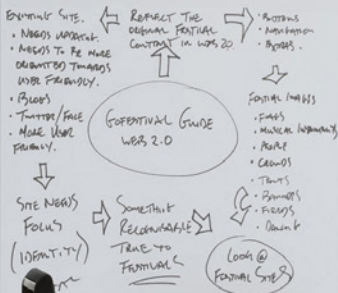 EXISTING SITE.
• NEEDS UPDATING.
• NEEDS TO BE MORE
ORIENTATED TOWARDS
USER FRIENDLY.
• BLOGS
• TWITTER/FACE
• MORE USER
FRIENDLY.
REFLECT THE
ORIGINAL FESTIVAL
CONTENT IN WEB 2.0
• BUTTONS
• NAVIGATION
• EXTRAS.
GOFESTIVAL GUIDE
WEB 2.0
FESTIVAL IMAGES
• FLAGS
• MUSICAL INSTRUMENTS
• PEOPLE
• CROWDS
• TENTS
• BANNERS
• FIELDS
SITE NEEDS
FOCUS
(IDENTITY)
SOMETHING
RECOGNISABLE
TRUE TO
FESTIVALS
LOOK @
FESTIVAL SITES